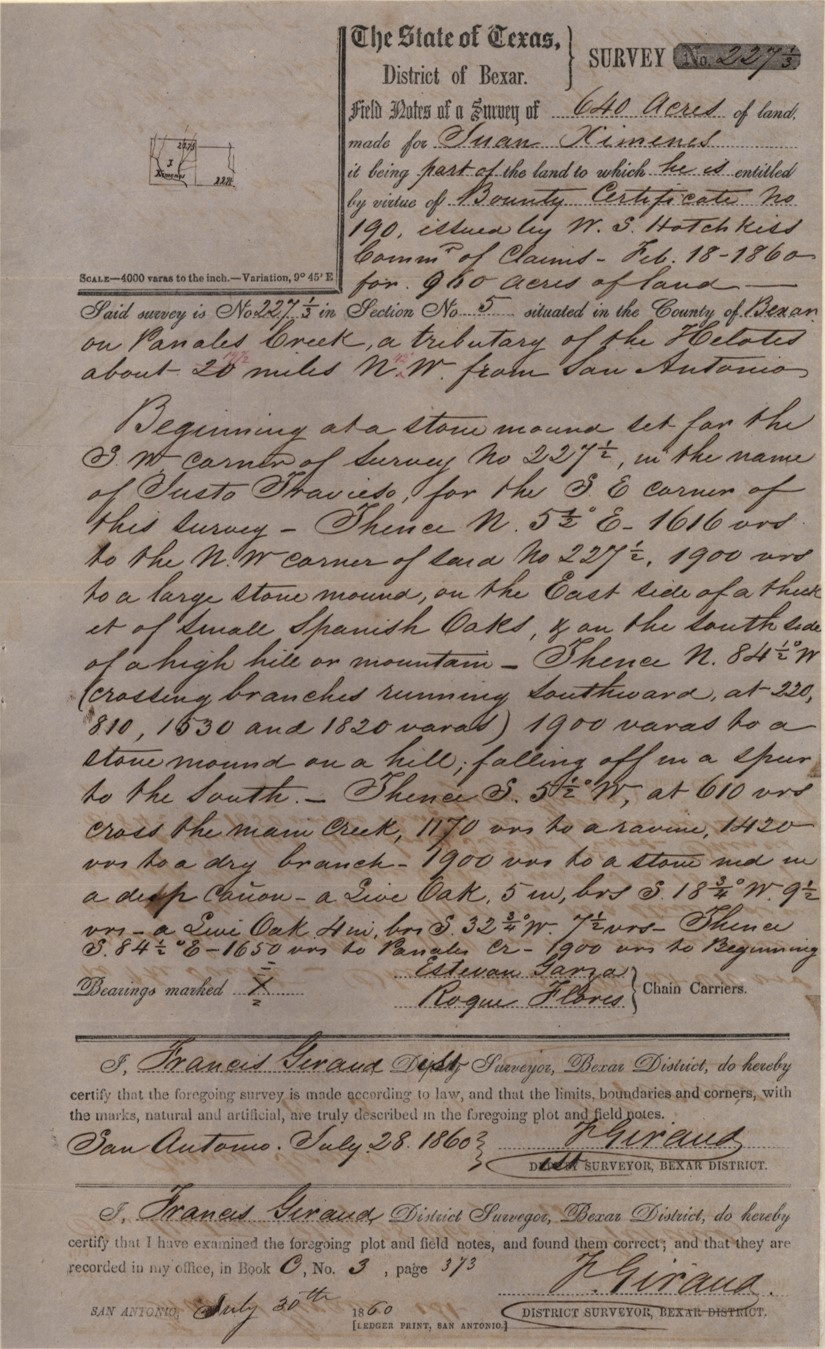 The State of Texas,
District of Bexar.
SURVEY No. 227 1/3
Field Notes of a Survey of 640 Acres of land,
made for Juan Ximenes
it being part of the land to which he is entitled
by virtue of Bounty Certificate No
190, issued by W. S. Hotchkiss
Commr of Claims - Feb. 18 - 1860
for 960 acres of land
227 1/2
3
Ximenes
SCALE—4000 varas to the inch.—Variation, 9° 45' E
Said survey is No 227 1/3 in Section No 5 situated in the County of Bexar
on Panales Creek, a tributary of the Helotes
about 20 miles N. W. from San Antonio
Beginning at a stone mound set for the
S. W. corner of survey No 227 1/2, in the name
of Justo Travieso, for the S E corner of
this survey - Thence N. 5 1/2° E - 1616 vrs
to the N. W corner of said No 227 1/2, 1900 vrs
to a large stone mound, on the East side of a thick
et of small Spanish Oaks, & on the south side
of a high hill or mountain - Thence N. 84 1/2° W
(crossing branches running southward, at 220,
810, 1530 and 1820 varas) 1900 varas to a
stone mound on a hill, falling off in a spur
to the South. - Thence S. 5 1/2° W, at 610 vrs
cross the main Creek, 1170 vrs to a ravine, 1420
vrs to a dry branch - 1900 vrs to a stone md in
a deep cañon - a Live Oak, 5 in, brs S. 18 3/4° W. 9 1/2
vrs - a Live Oak 4 in, brs S. 32 3/4° W. 7 1/2 vrs - Thence
S. 84 1/2° E - 1650 vrs to Panales Cr - 1900 vrs to Beginning
Bearings marked X
Estevan Garza
Roque Flores
Chain Carriers.
I, Francis Giraud Dist Surveyor, Bexar District, do hereby
certify that the foregoing survey is made according to law, and that the limits, boundaries and corners, with
the marks, natural and artificial, are truly described in the foregoing plot and field notes.
San Antonio. July. 28. 1860
F Giraud
Dist SURVEYOR, BEXAR DISTRICT.
I, Francis Giraud, District Surveyor, Bexar District, do hereby
certify that I have examined the foregoing plot and field notes, and found them correct; and that they are
recorded in my office, in Book C, No. 3, page 373
F. Giraud.
SAN ANTONIO, July 30th 1860
DISTRICT SURVEYOR, BEXAR DISTRICT.
[LEDGER PRINT, SAN ANTONIO.]